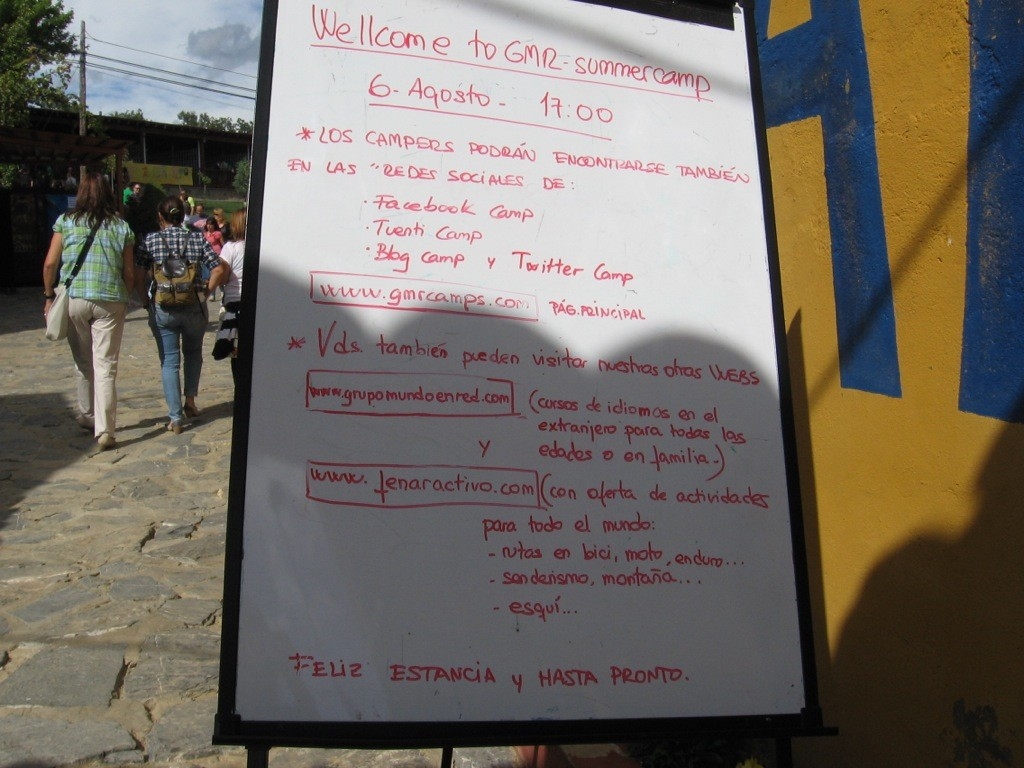 Wellcome to GMR-summercamp
6-Agosto- 17:00
* LOS CAMPERS PODRÁN ENCONTRARSE TAMBIÉN
EN LAS "REDES SOCIALES DE:
· Facebook Camp
· Tuenti Camp
· Blog Camp y Twitter Camp
www.gmrcamps.com PÁG.PRINCIPAL
* Vds. también pueden visitar nuestras otras WEBS
www.grupomundoenred.com (cursos de idiomas en el
extranjero para todas las
y edades o en familia.)
www.fenaractivo.com (con oferta de actividades
para todo el mundo:
- rutas en bici, moto, enduro...
- senderismo, montaña...
- esquí...
FELIZ ESTANCIA y HASTA PRONTO.